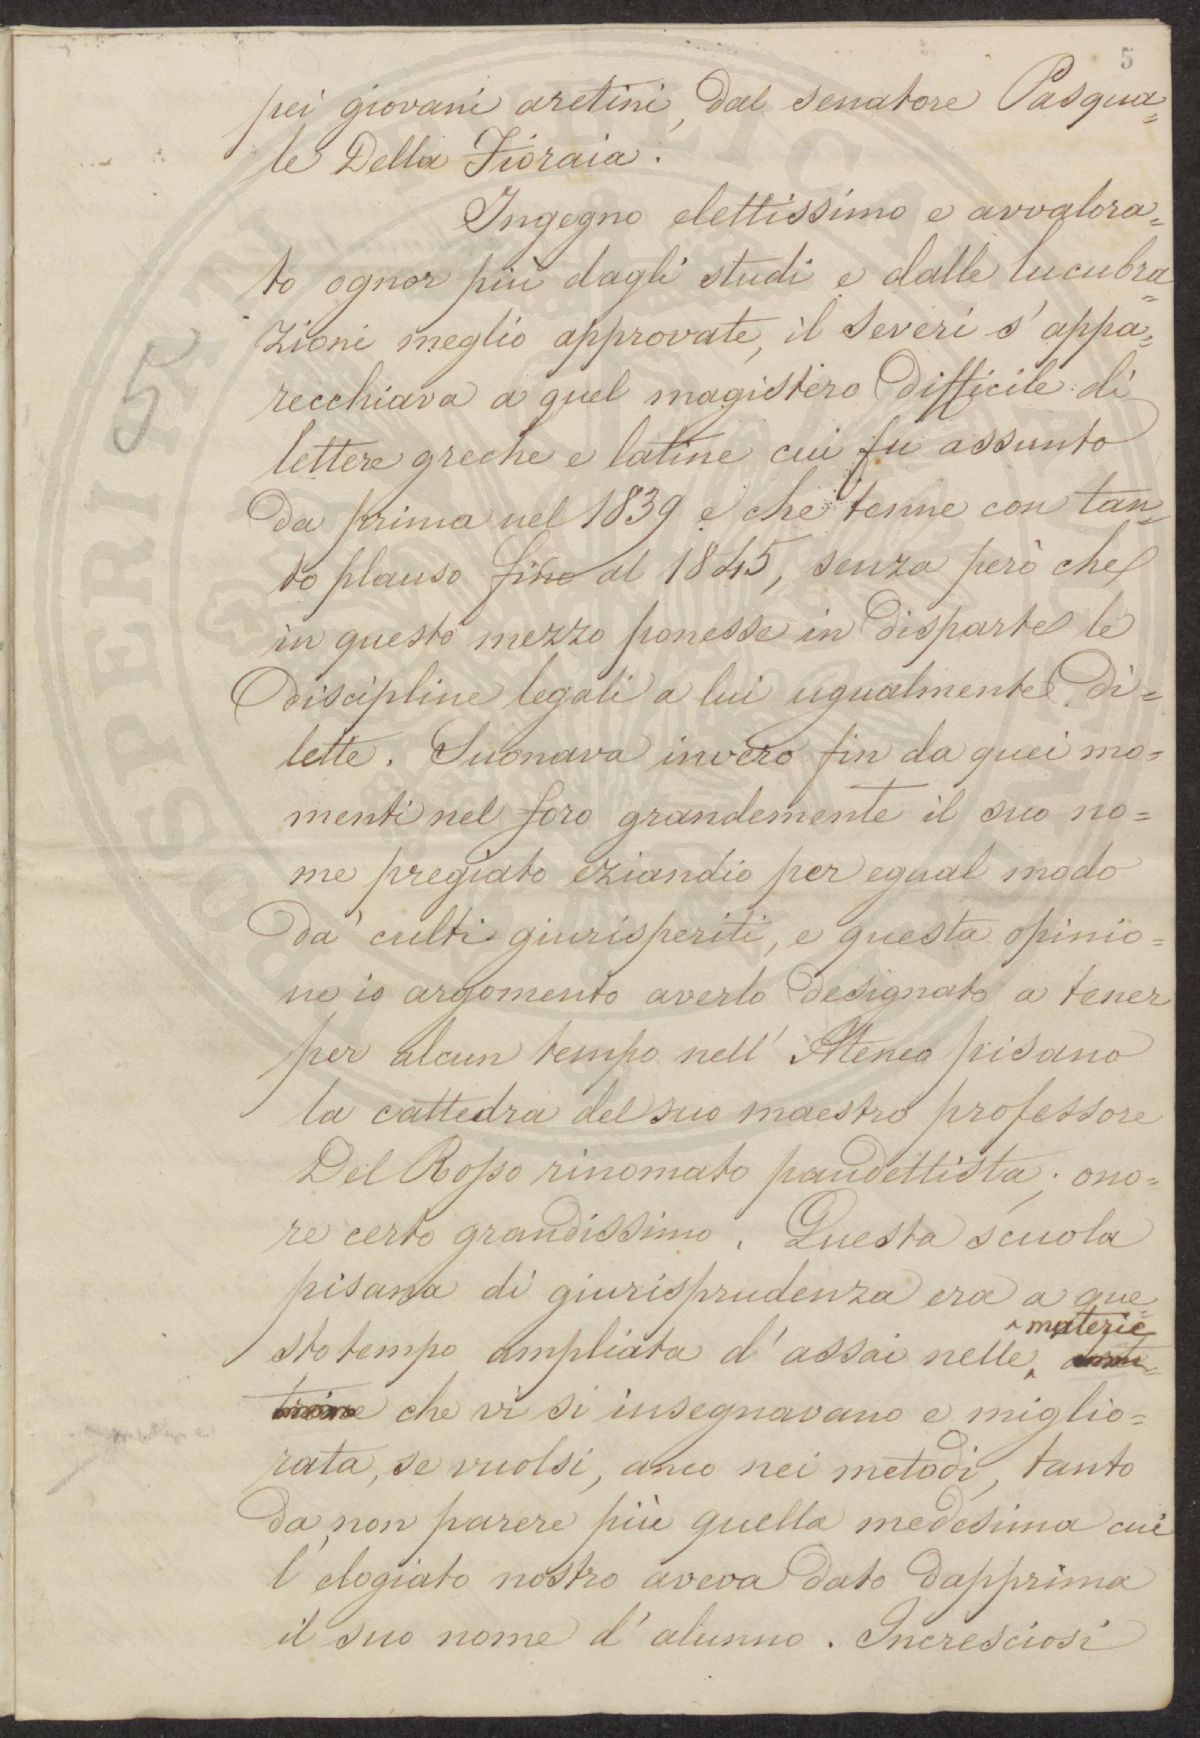 5
pei giovani aretini, dal senatore Pasqua=
le Della Fioraia.
Ingegno elettissimo e avvalora=
to ognor più dagli studi e dalle lucubra=
zioni meglio approvate, il Severi s'appa=
recchiava a quel magistero difficile di
lettere greche e latine cui fu assunto
da prima nel 1839 e che tenne con tan=
to plauso fino al 1845, senza però che
in questo mezzo ponesse in disparte le
discipline legali a lui ugualmente di=
lette. Suonava invero fin da quei mo=
menti nel foro grandemente il suo no=
me pregiato eziandio per egual modo
da' culti giurisperiti, e questa opinio=
ne io argomento averlo designato a tener
per alcun tempo nell' Ateneo pisano
la cattedra del suo maestro professore
Del Rosso rinomato pandettista; ono=
re certo grandissimo. Questa scuola
pisana di giurisprudenza era a que=
materie
sto tempo ampliata d'assai nelle
che vi si insegnavano e miglio=
rata, se vuolsi, anco nei metodi, tanto
da non parere più quella medesima cui
l'elogiato nostro aveva dato dapprima
il suo nome d'alunno. Incresciosi
5